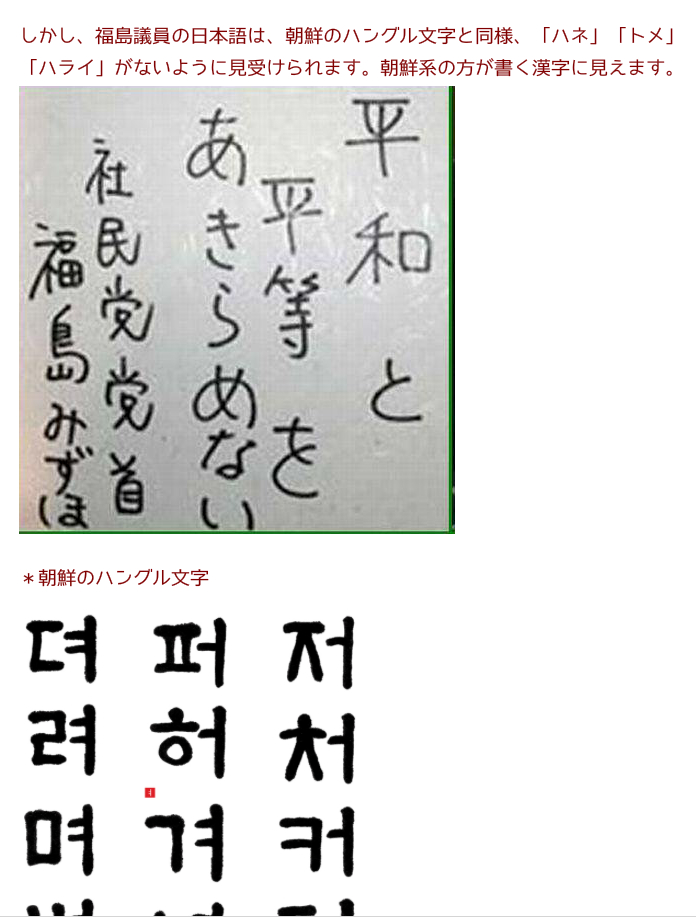 しかし、福島議員の日本語は、朝鮮のハングル文字と同様、「ハネ」「トメ」
「ハライ」がないように見受けられます。朝鮮系の方が書く漢字に見えます。
平和と
平等を
あきらめない
社民党党首
福島みずほ
＊朝鮮のハングル文字
뎌 퍼 저
려 허 처
며 겨 커